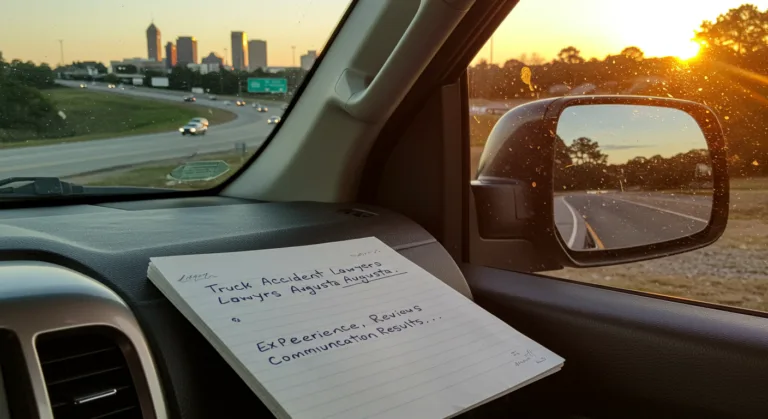 Truck Accident Lawyers
Lawyrs Augusta Augusta.
Expeerience, Reviews
Commiuncation Results...